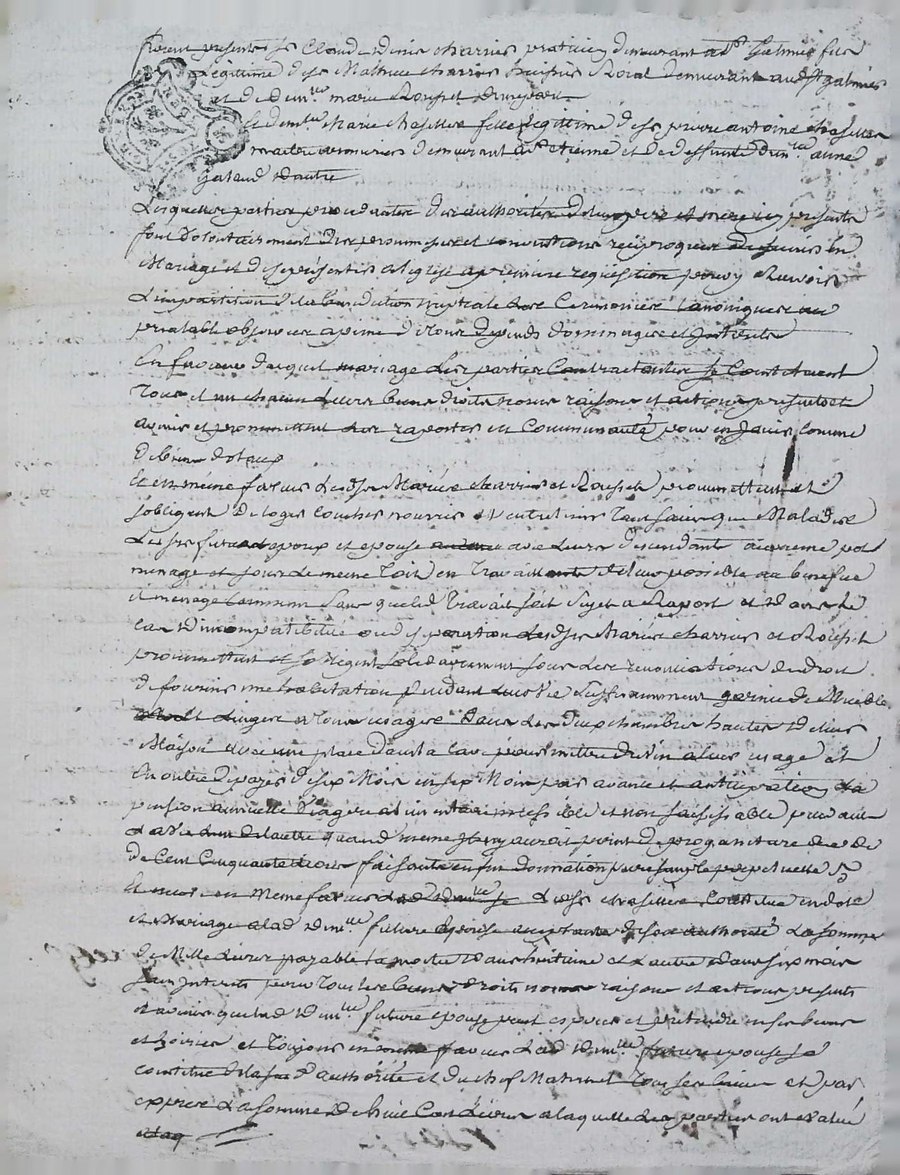 furent presents sr Claude denis charrier praticien demeurant a st Galmier fils
Legittime de sr Mathieu charrier huissier Roial demeurant audt st galmier
et de dem.lle marie Rousset demeurant
Et dem.lle Marie chasselle fille Legittime de sr pierre antoine chasselle
maitre demeurant a st etienne et de deffunte dem.lle anne
d'autre
Lesquelles parties procedantes des authorités de leurs pere et mere icy presents
font volontairement des promesses et conventions reciproques de s'unir en
Mariage et de se présenter a l'eglise a premiere requisition pour y Recevoir
L'impartition de la benediction nuptiale Les Ceremonies Canoniques au
prealable observées a peine de tous depends dommages et Interets
En faveur duquel mariage Les parties Contractantes se Constituent
Tous et un chacun Leurs biens droits noms raisons et actions presents et
avenir et promettent Les raporter en Communauté pour en Jouir comme
de biens dotaux
Et en même faveur Lesd. sr Mariés charrier et Rousset promettent et
s'obligent de loger coucher nourrir et entretenir Tant sains que Malades
Lesd. futurs epoux et epouse avec Leurs descendants a meme pot
menage et sous Le meme Toit en Travaillant de leur possible au benefice
du menage Commun sans que led. Travail soit sujet a Raport et dans Le
cas d'incompatibilité ou de separation Lesd. sr Mariés charrier et Rousset
promettent et s'obligent solidairement sous Les renonciations de droit
de fournir une habitation pendant Leur vie suffisamment garnie de Meubles
et Linges a leur usage dans Les deux chambres hautes de leur
Maison avec une place dans la cave pour mettre du vin a leur usage et
En outre de payer de six Mois en six Mois par avance et anticipation La
pension annuelle viagere et non saisissable
La vie quand meme
de Cent Cinquante livres faisants en fin donnation pure simple perpetuelle
Et aussi en Meme faveur de lad. dem.lle Led. sr chasselle Constitue en dote
et Mariage a lad. dem.lle future epouse acceptante de son authorité La somme
de Mille Livres payable La moitié dans huitaine et L'autre dans six mois
sans Interets pour Tous Les biens droits noms raisons et actions presents
et avenir que lad. dem.lle future epouse peut esperer et pretendre en ses biens
et hoirie et Toujours en faveur Lad. dem.lle future epouse se
constitue de la sd. authorité et du chef Maternel Tous ses biens et par
exprès La somme de huit Cent Livres a laquelle Les parties ont evalué